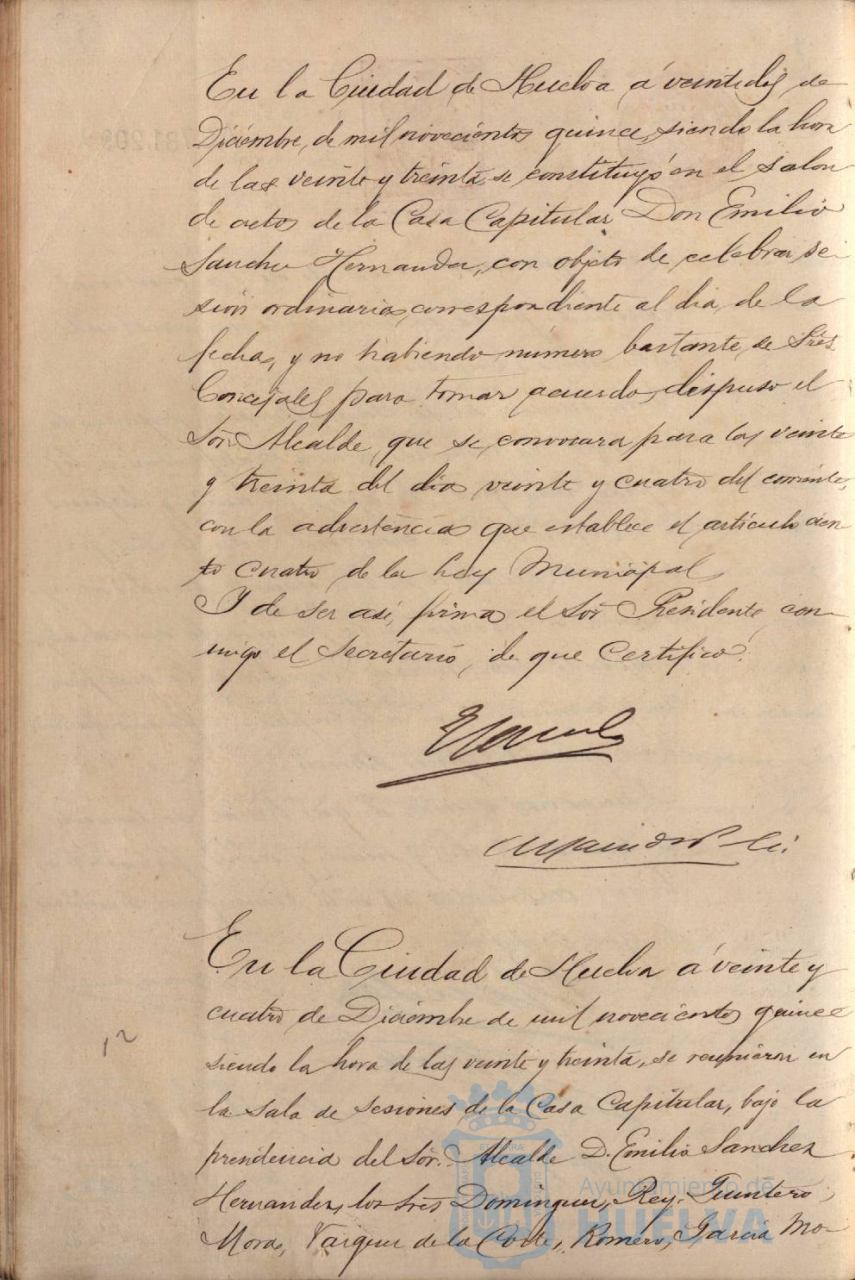 En la Ciudad de Huelva á veintedos de
Diciembre, de mil novecientos quince, siendo la hora
de las veinte y treinta, se constituyó en el salon
de actos de la Casa Capitular Don Emilio
Sanchez Hernandez, con objeto de celebrar se-
sión ordinaria, correspondiente al dia, de la
fecha, y no habiendo número bastante, de Sres
Concejales para tomar acuerdo, dispuso el
Sór Alcalde, que se, convocara para las veinte
y treinta del dia veinte y cuatro del corriente,
con la advertencia que establece el artículo cien
to cuatro de la Ley Municipal
Y de ser así, firma el Sór Presidente, con-
migo el Secretario, de que Certifico.
En la Ciudad de Huelva á veinte y
cuatro de Diciembre de mil novecientos quince
siendo la hora de las veinte y treinta, se reunieron en
la sala de sesiones de la Casa Capitular, bajo la
presidencia del Sór. Alcalde D. Emilio Sanchez
Hernandez, los Sres Dominguez, Rey, Quintero,
Mora, Vazquez de la Corte, Romero, García Mo-
12
Ayuntamiento de
HUELVA